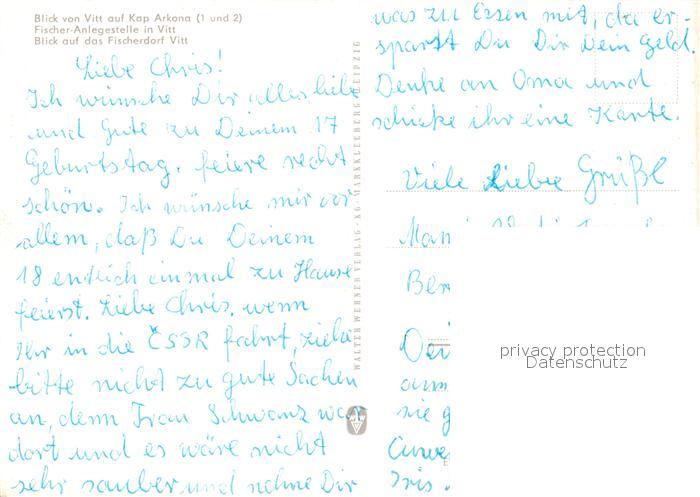 Blick von Vitt auf Kap Arkona (1 und 2)
Fischer-Anlegestelle in Vitt
Blick auf das Fischerdorf Vitt
Liebe Chris!
Ich wünsche Dir alles liebe
und Gute zu Deinem 17
Geburtstag. feiere recht
schön. Ich wünsche mir vor
allem, daß Du Deinem
18 endlich einmal zu Hause
feierst. Liebe Chris, wenn
Ihr in die ČSSR fahrt, ziehe
bitte nicht zu gute Sachen
an, denn Frau Schwarz war
dort und es wäre nicht
sehr sauber und nehme Dir
WALTER WERNER VERLAG · KG · MARKKLEEBERG-LEIPZIG
was zu Essen mit, da er-
sparst Du Dir Dein Geld.
Denke an Oma und
schicke ihr eine Karte.
Viele Liebe Grüße
privacy protection
Datenschutz
sie g
Iris.